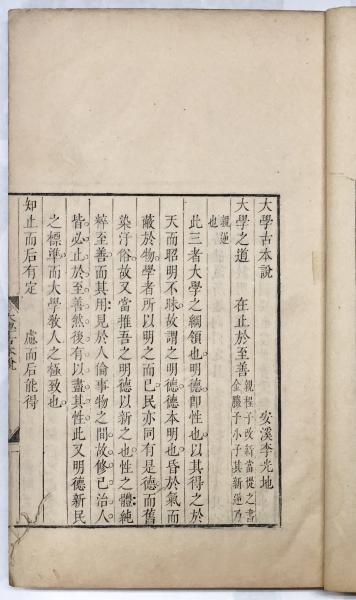 大學古本說
安溪李光地
大學之道 在止於至善 親程子改新當從之書金縢予小子其新逆乃
親逆
也
此三者大學之綱領也明德即性也以其得之於
天而昭明不昧故謂之明德德本明也昏於氣而
蔽於物學者所以明之而已民亦同有是德而舊
染汙俗故又當推吾之明德以新之也性之體純
粹至善而其用見於人倫事物之間故修已治人
皆必止於至善然後有以盡其性此又明德新民
之標準而大學教人之極致也
知止而后有定 慮而后能得
大學古本說